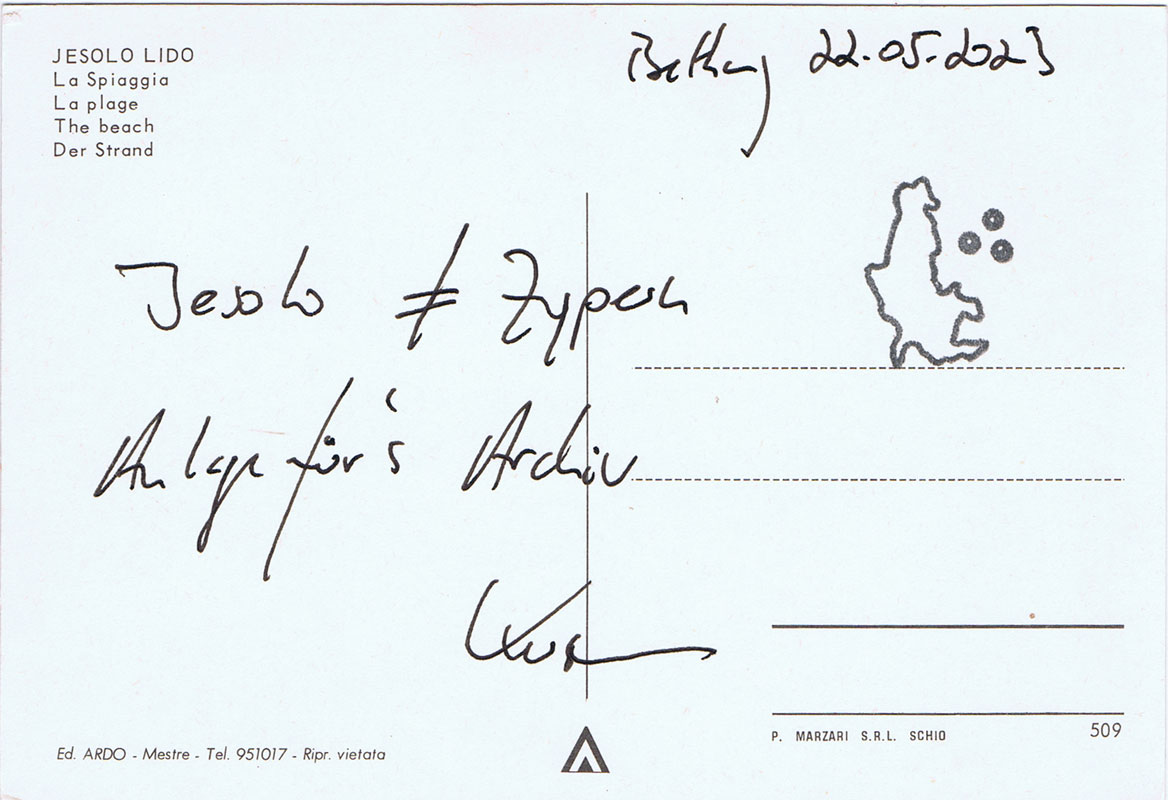 JESOLO LIDO
La Spiaggia
La plage
The beach
Der Strand
22.05.2023
Jesolo ≠ Zypern
Anlage für's Archiv
Ed. ARDO - Mestre - Tel. 951017 - Ripr. vietata
P. MARZARI S.R.L. SCHIO
509